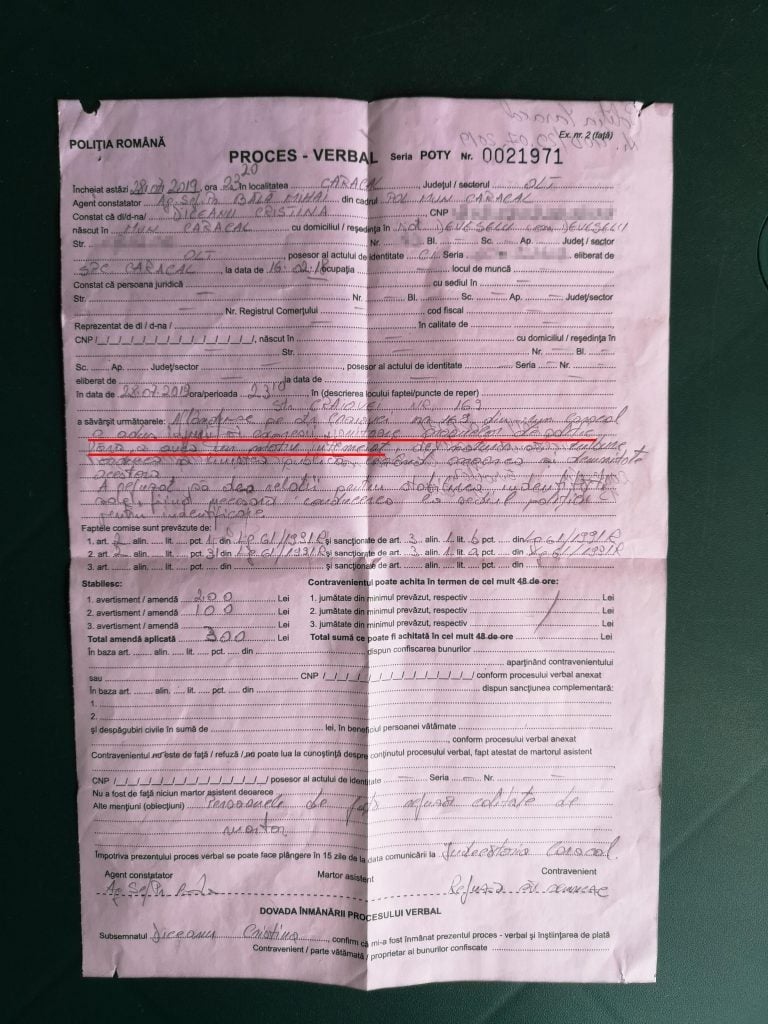 Ex. nr. 2 (față)
POLIȚIA ROMÂNĂ
PROCES - VERBAL Seria POTY Nr. 0021971
Încheiat astăzi 2019, ora 22 20 în localitatea CARACAL Județul / sectorul OLT
Agent constatator BĂLĂ MIHAI din cadrul POL. MUN. CARACAL
Constat că dl/d-na/ DICEANU CRISTINA CNP
născut în MUN CARACAL cu domiciliu / reședința în DEVESELU com DEVESELU
Str. Nr. Bl. Sc. Ap. Județ / sector
OLT posesor al actului de identitate C.I. Seria eliberat de
SPC. CARACAL la data de 16.02.18 ocupația locul de muncă
Constat că persoana juridică cu sediul în
Str. Nr. Bl. Sc. Ap. Județ/sector
Nr. Registrul Comerțului cod fiscal
Reprezentat de dl / d-na / în calitate de
CNP /_/_/_/_/_/_/_/_/_/_/_/_/_/, născut în cu domiciliu / reședința în
Str. Nr. Bl.
Sc. Ap. Județ/sector posesor al actului de identitate Seria Nr.
eliberat de la data de
în data de 2019 ora/perioada 23 10 în (descrierea locului faptei/puncte de reper)
Str. CRAIOVEI NR. 163
a săvârșit următoarele: pe str. Craiovei nr 163 din mun Caracal
a organelor de poliție
fără a avea un motiv întemeiat, de natură să tulbure
ordinea și liniștea publică,
acestora
A refuzat să dea relații pentru stabilirea identității
sale fiind necesară conducerea la sediul poliției
pentru identificare
Faptele comise sunt prevăzute de:
1. art. 2 alin. lit. pct. 1 din Lp 61/1991R și sancționate de art. 3 alin. 1 lit. b pct. din Lp 61/1991R
2. art. 2 alin. lit. pct. 31 din Lp 61/1991R și sancționate de art. 3 alin. 1 lit. a pct. din Lp 61/1991R
3. art. alin. lit. pct. din și sancționate de art. alin. lit. pct. din
Stabilesc: Contravenientul poate achita în termen de cel mult 48 de ore:
1. avertisment / amendă 200 Lei 1. jumătate din minimul prevăzut, respectiv Lei
2. avertisment / amendă 100 Lei 2. jumătate din minimul prevăzut, respectiv Lei
3. avertisment / amendă Lei 3. jumătate din minimul prevăzut, respectiv Lei
Total amendă aplicată 300 Lei Total sumă ce poate fi achitată în cel mult 48 de ore Lei
În baza art. alin. lit. pct. din dispun confiscarea bunurilor
aparținând contravenientului
sau CNP /_/_/_/_/_/_/_/_/_/_/_/_/_/ conform procesului verbal anexat
În baza art. alin. lit. pct. din dispun sancțiunea complementară:
1.
2.
și despăgubiri civile în sumă de lei, în beneficiul persoanei vătămate
, conform procesului verbal anexat
Contravenientul nu este de față / refuză / nu poate lua la cunoștință despre conținutul procesului verbal, fapt atestat de martorul asistent
CNP /_/_/_/_/_/_/_/_/_/_/_/_/_/ posesor al actului de identitate Seria Nr.
Nu a fost de față niciun martor asistent deoarece
Alte mențiuni (obiecțiuni) Persoanele de față refuză calitatea de
martor
Împotriva prezentului proces verbal se poate face plângere în 15 zile de la data comunicării la Judecătoria Caracal.
Agent constatator Martor asistent Contravenient
Refuză să semneze
DOVADA ÎNMÂNĂRII PROCESULUI VERBAL
Subsemnatul Diceanu Cristina, confirm că mi-a fost înmânat prezentul proces - verbal și înștiințarea de plată
Contravenient / parte vătămată / proprietar al bunurilor confiscate